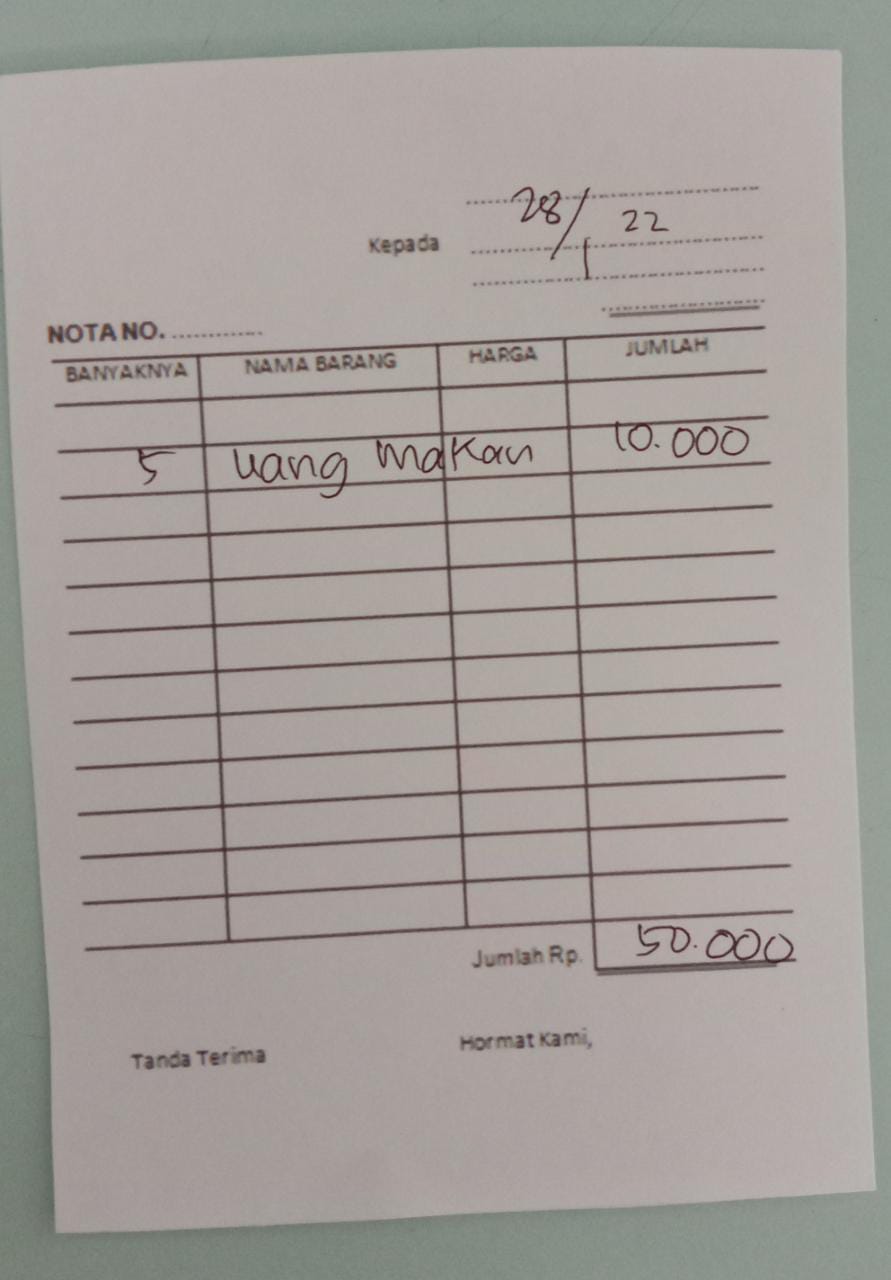 28/1 22
Kepada
NOTA NO. .............
BANYAKNYA NAMA BARANG HARGA JUMLAH
5 uang makan 10.000
Jumlah Rp. 50.000
Tanda Terima Hormat Kami,